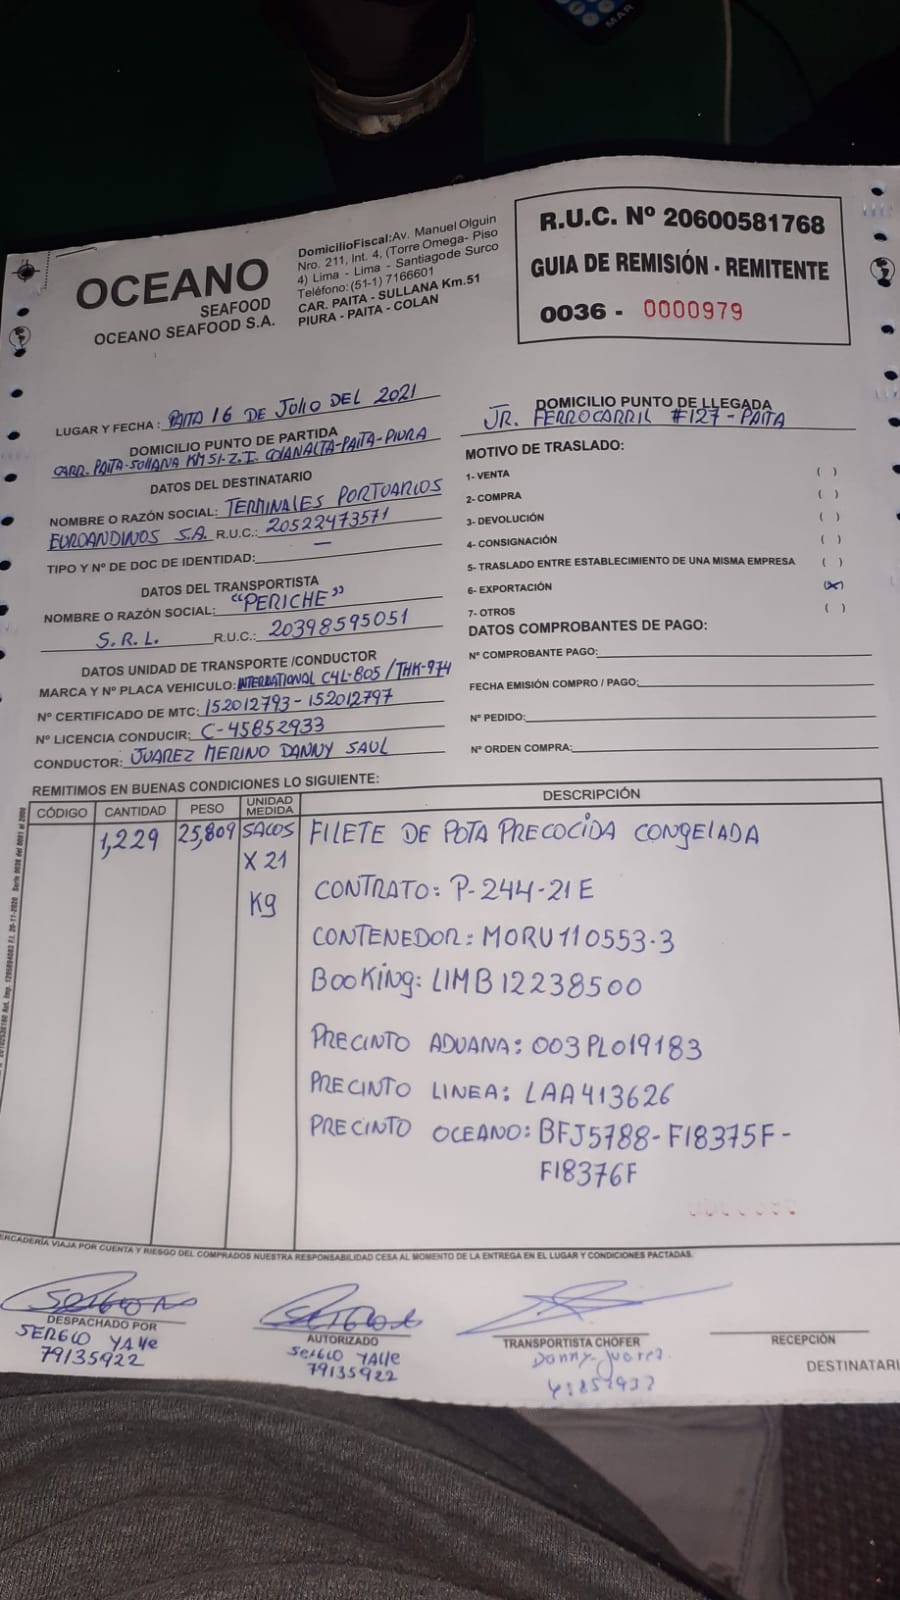 MAR
OCEANO
SEAFOOD
OCEANO SEAFOOD S.A.
DomicilioFiscal:Av. Manuel Olguin
Nro. 211, Int. 4, (Torre Omega- Piso
4) Lima - Lima - Santiagode Surco
Teléfono:(51-1) 7166601
CAR. PAITA - SULLANA Km.51
PIURA - PAITA - COLAN
R.U.C. Nº 20600581768
GUIA DE REMISIÓN - REMITENTE
0036 - 0000979
LUGAR Y FECHA : PAITA 16 DE JULIO DEL 2021
DOMICILIO PUNTO DE PARTIDA
CARR. PAITA-SULLANA KM 51-Z.I. COLANALTA-PAITA-PIURA
DATOS DEL DESTINATARIO
NOMBRE O RAZÓN SOCIAL: TERMINALES PORTUARIOS
EUROANDINOS S.A. R.U.C.: 20522473571
TIPO Y Nº DE DOC DE IDENTIDAD: —
DATOS DEL TRANSPORTISTA
NOMBRE O RAZÓN SOCIAL: "PERICHE"
S.R.L. R.U.C.: 20398595051
DATOS UNIDAD DE TRANSPORTE /CONDUCTOR
MARCA Y Nº PLACA VEHICULO: INTERNATIONAL C4L-805 / THK-974
Nº CERTIFICADO DE MTC: 152012793 - 152012797
Nº LICENCIA CONDUCIR: C-45852933
CONDUCTOR: JUAREZ MERINO DANNY SAUL
DOMICILIO PUNTO DE LLEGADA
JR. FERROCARRIL #127 - PAITA
MOTIVO DE TRASLADO:
1- VENTA ( )
2- COMPRA ( )
3- DEVOLUCIÓN ( )
4- CONSIGNACIÓN ( )
5- TRASLADO ENTRE ESTABLECIMIENTO DE UNA MISMA EMPRESA ( )
6- EXPORTACIÓN (X)
7- OTROS ( )
DATOS COMPROBANTES DE PAGO:
Nº COMPROBANTE PAGO:
FECHA EMISIÓN COMPRO / PAGO:
Nº PEDIDO:
Nº ORDEN COMPRA:
REMITIMOS EN BUENAS CONDICIONES LO SIGUIENTE:
CÓDIGO CANTIDAD PESO UNIDAD MEDIDA DESCRIPCIÓN
1,229 25,809 SACOS FILETE DE POTA PRECOCIDA CONGELADA
X 21
Kg
CONTRATO: P-244-21E
CONTENEDOR: MORU110553-3
BOOKING: LIMB12238500
PRECINTO ADUANA: 003PL019183
PRECINTO LINEA: LAA413626
PRECINTO OCEANO: BFJ5788-F18375F-
F18376F
ERCADERÍA VIAJA POR CUENTA Y RIESGO DEL COMPRADOS NUESTRA RESPONSABILIDAD CESA AL MOMENTO DE LA ENTREGA EN EL LUGAR Y CONDICIONES PACTADAS.
DESPACHADO POR
SERGIO YALLE
79135922
AUTORIZADO
SERGIO YALLE
79135922
TRANSPORTISTA CHÓFER
Danny Juarez
RECEPCIÓN
DESTINATARI